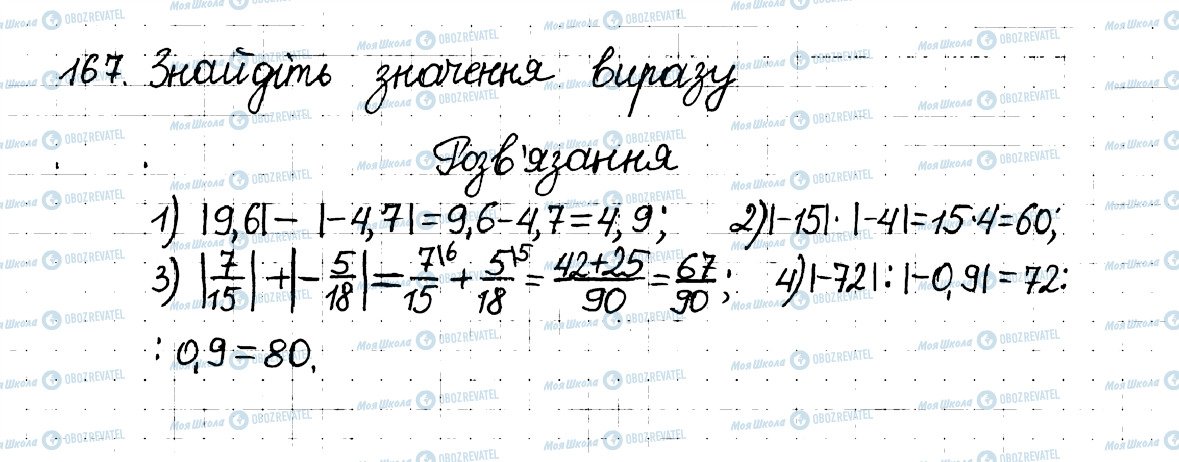 167. Знайдіть значення виразу
Розв'язання
1) |9,6| - |-4,7| = 9,6 - 4,7 = 4,9; 2) |-15| · |-4| = 15·4 = 60;
3) |7/15| + |-5/18| = 7\6/15 + 5\5/18 = 42+25/90 = 67/90; 4) |-72| : |-0,9| = 72 :
: 0,9 = 80.